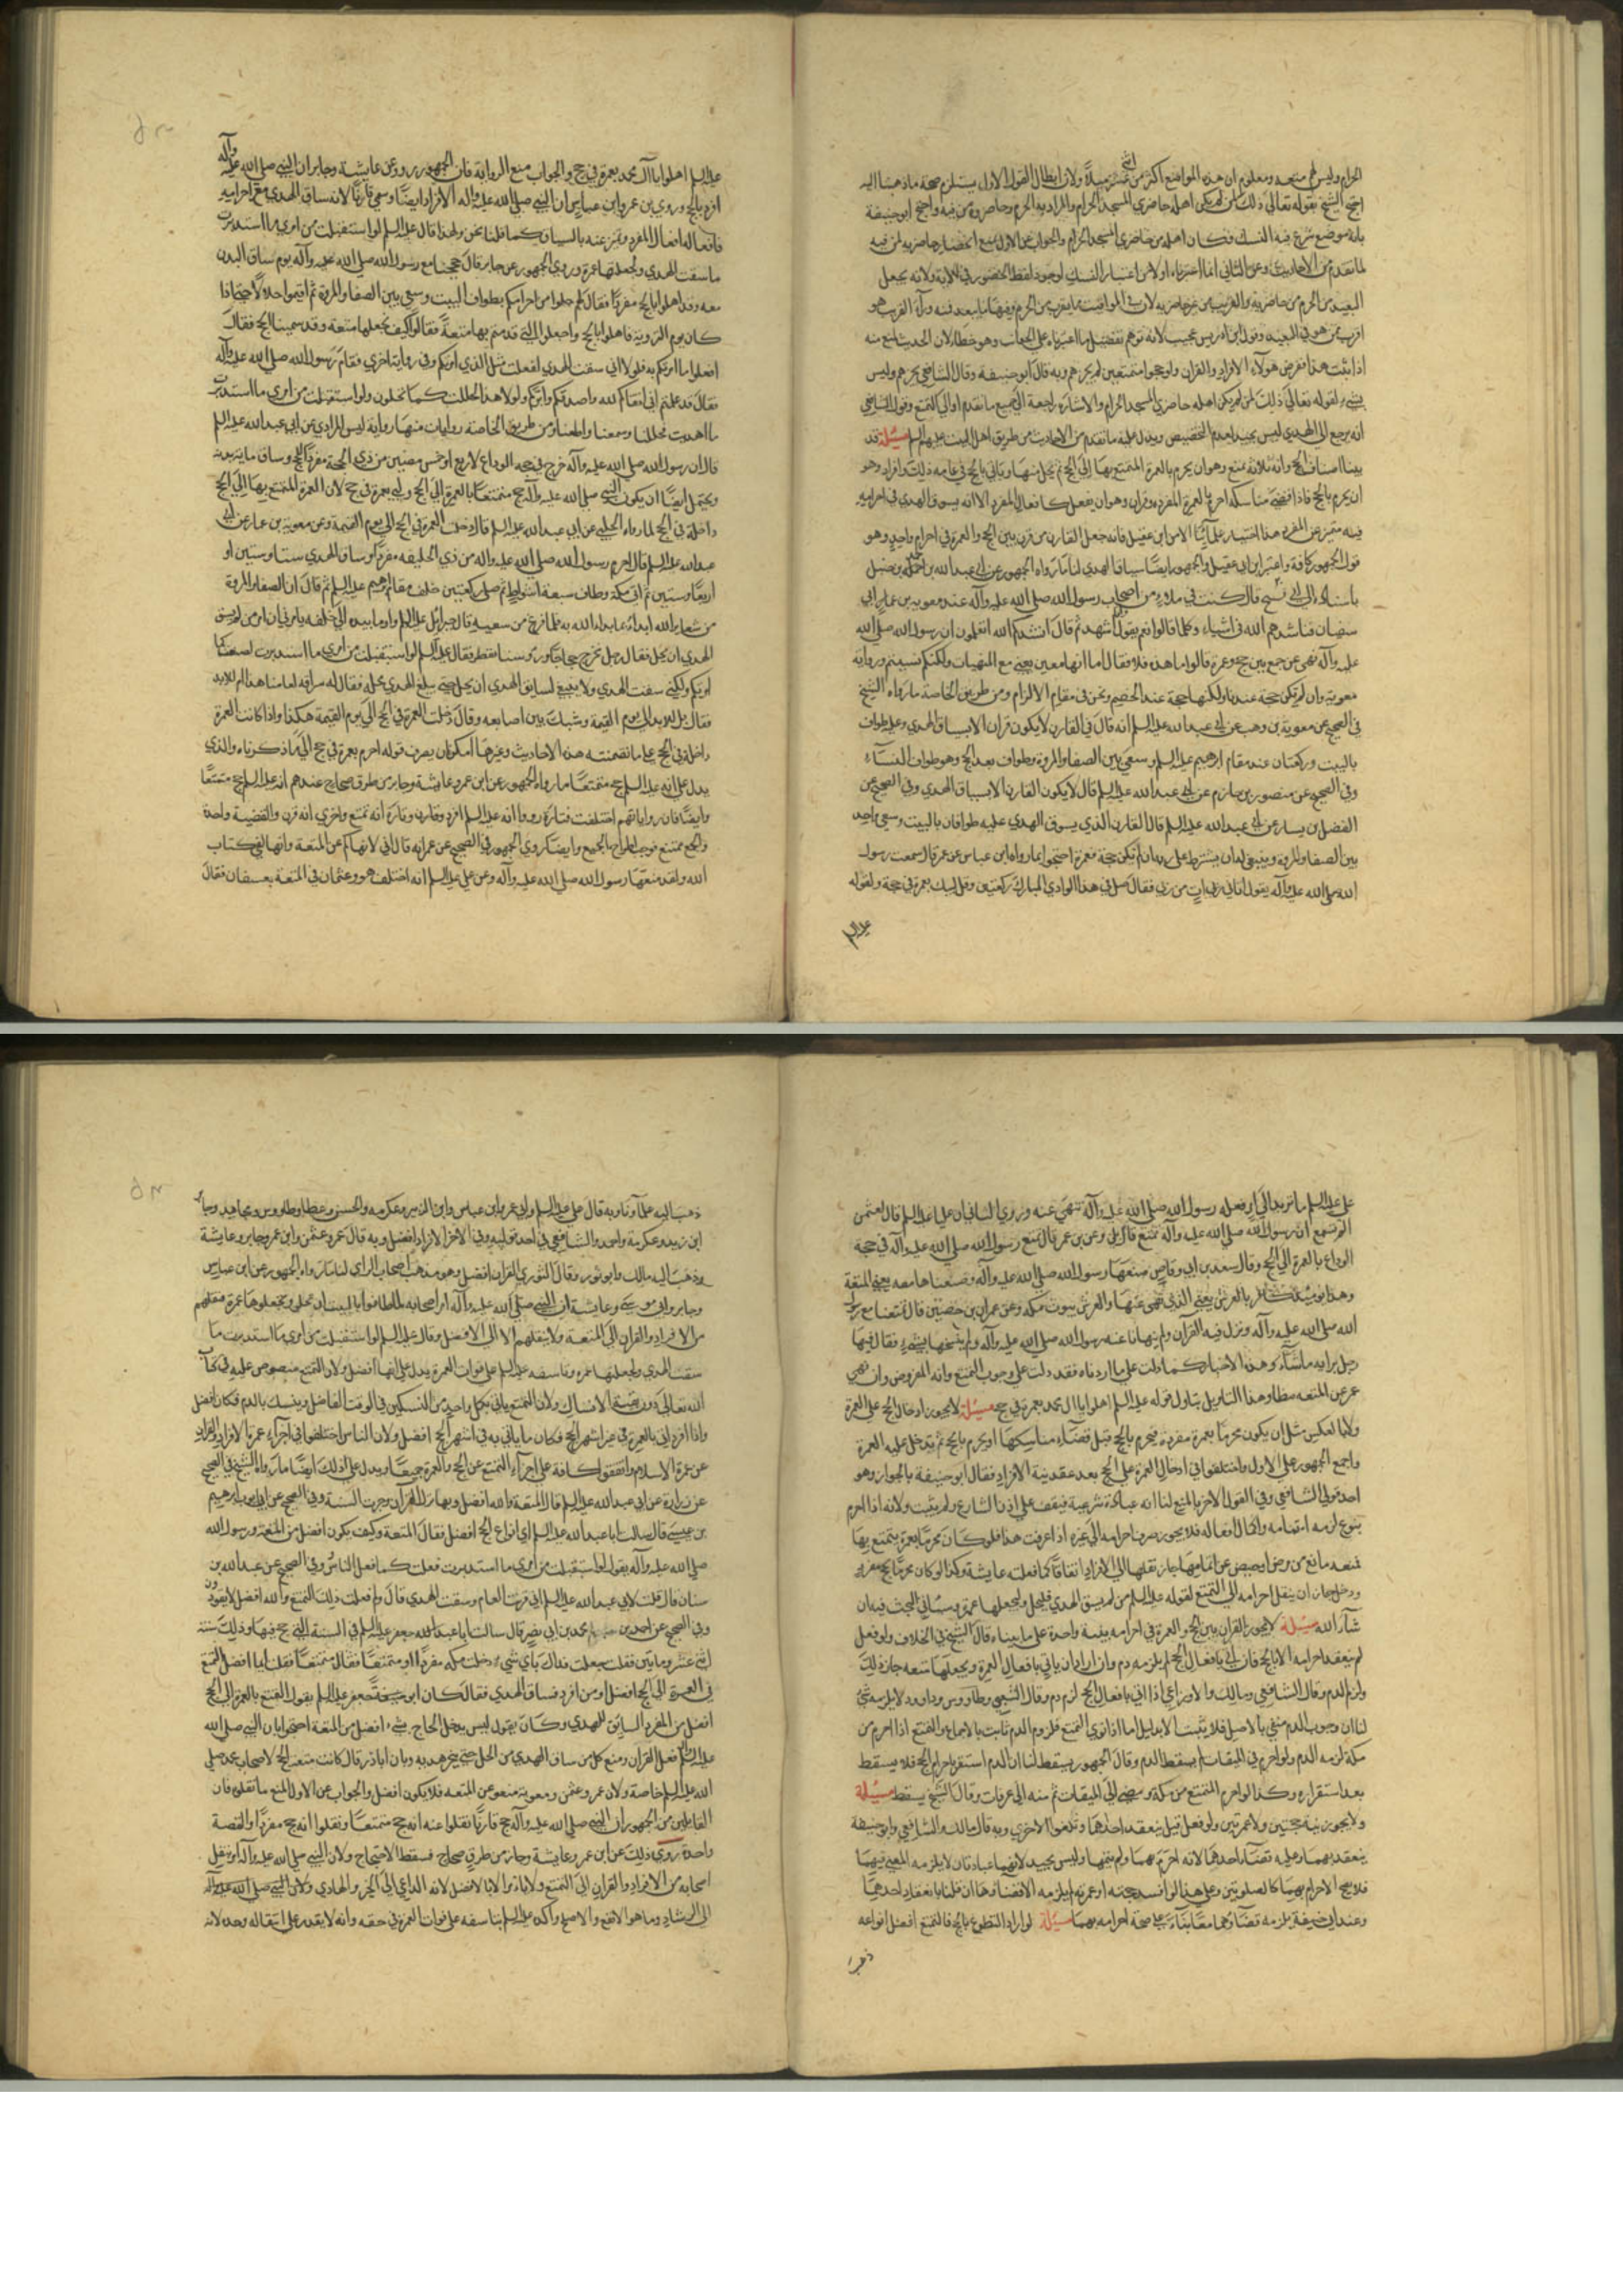 الحرام وليس لهم متعه ومعلوم ان هذه المواضع أكثر من اثني عشر ميلاً ولان ابطال القول الاول يستلزم صحة ما ذهبنا اليه
احتج الشيخ بقوله تعالى ذلك لمن لم يكن اهله حاضري المسجد الحرام والمراد به الحرم وحاضروه من فيه واحتج ابو حنيفة
بانه موضع شرع فيه النسك فكان اهله من حاضري المسجد الحرام والجواب عن الاول
لما تقدم من الاحاديث وعن الثاني انما اعتبرناه اولا من اعتبار النسك لوجود لفظ الحضور في الاية ولانه يجعل
البعيد من الحرم من حاضريه والقريب من غير حاضريه لان في المواقيت ما يقرب من الحرم ومنها ما يبعد
وقول ابن ادريس عجيب لانه توهم تفضيل ما اعتبرناه على الجهات وهو خطأ لان الحديث
اذا ثبت هذا ففرض هولاء الافراد والقران ولو حجوا متمتعين لم يجزهم وبه قال ابو حنيفة وقال الشافعي يجزيهم وليس
لقوله تعالى ذلك لمن لم يكن اهله حاضري المسجد الحرام والاشارة راجعة الى جميع ما تقدم اولى التمتع وقول الشافعي
انه يرجع الى الهدي ليس بجيد لعدم التخصيص ويدل عليه ما تقدم من الاحاديث من طريق اهل البيت عليهم السلم مسئلة قد
بينا اصناف الحج وانه ثلاثة تمتع وهو ان يحرم بالعمرة المتمتع بها الى الحج ثم يحل منها ويأتي بالحج في عامه ذلك وافراد وهو
ان يحرم بالحج فاذا قضى مناسكه احرم بالعمرة المفرده وقران وهو ان يفعل كافعال المفرد الا انه يسوق الهدي في احرامه
فبه يتميز عن المفرد هذا اختيار علمآئنا الا من ابن عقيل فانه جعل القارن من قرن بين الحج والعمرة في احرام واحد وهو
قول الجمهور كافة واعتبر ابن ابي عقيل والجمهور ايضا سياق الهدي لنا ما رواه الجمهور عن عبد الله بن احمد بن حنبل
باسناده الى ابي شيخ قال كنت في ملاء من اصحاب رسول الله صلى الله عليه وآله عند معويه بن ابي
سفيان فناشدهم الله في اشياء وكلما قالوا نعم يقول وانا اشهد ثم قال انشدكم الله اتعلمون ان رسول الله صلى الله
عليه وآله نهى عن جمع بين حج وعمرة قالوا اما هذه فلا فقال اما انها معهن يعني مع المنهيات ولكنكم نسيتم ورواية
معوية وان لم تكن حجة عندنا ولكنها حجة عند الخصم ونحن في مقام الالزام ومن طريق الخاصة ما رواه الشيخ
في الصحيح عن معوية بن وهب عن ابي عبد الله عليه السلم انه قال في القارن لا يكون قران الا بسياق الهدي وعليه طواف
بالبيت وركعتان عند مقام ابرهيم عليه السلم وسعي بين الصفا والمروة وطواف بعد الحج وهو طواف النسآء
وفي الصحيح عن منصور بن حازم عن ابي عبد الله عليه السلم قال لا يكون القارن الا بسياق الهدي وفي الصحيح عن
الفضيل بن يسار عن ابي عبد الله عليه السلم قال القارن الذي يسوق الهدي عليه طوافان بالبيت وسعي واحد
بين الصفا والمروة وينبغي له ان يشترط على ربه ان لم تكن حجة فعمرة احتجوا بما رواه ابن عباس عن عمر قال سمعت رسول
الله صلى الله عليه وآله يقول اتاني آت من ربي فقال صل في هذا الوادي المبارك ركعتين وقل لبيك بعمرة في حجة ولقوله
عليه السلم
عليه السلم اهلوا يا آل محمد بعمرة في حج والجواب منع الرواية فان الجمهور رووا عن عايشة وجابر ان النبي صلى الله عليه وآله
افرد بالحج وروي ابن عمر وابن عباس ان النبي صلى الله عليه وآله الافراد ايضا وسمي قارنا لانه ساق الهدي مع احرامه
فافعاله افعال المفرد وتميز عنه بالسياق كما قلنا نحن ولهذا قال عليه السلم لو استقبلت من امري ما استدبرت
ما سقت الهدي ولجعلتها عمرة وروي الجمهور عن جابر قال حججنا مع رسول الله صلى الله عليه وآله يوم ساق البدن
معه وقد اهلوا بالحج مفردا فقال لهم حلوا من احرامكم بطواف البيت وسعي بين الصفا والمروة ثم اقيموا حلالا حتى اذا
كان يوم التروية فاهلوا بالحج واجعلوا التي قدمتم بها متعة فقالوا كيف نجعلها متعة وقد سمينا الحج فقال
افعلوا ما امرتكم به فلولا اني سقت الهدي لفعلت مثل الذي امرتكم وفي رواية اخرى فقام رسول الله صلى الله عليه وآله
فقال قد علمتم اني اتقاكم لله واصدقكم وابركم ولولا هديي لحللت كما تحلون ولو استقبلت من امري ما استدبرت
ما اهديت فحللنا وسمعنا واطعنا ومن طريق الخاصة روايات منها رواية ليس المرادي عن ابي عبد الله عليه السلم
قال ان رسول الله صلى الله عليه وآله خرج في حجة الوداع لاربع او خمس مضين من ذي الحجة مفردا للحج وساق ماية بدنة
ويحتمل ايضا ان يكون النبي صلى الله عليه وآله حج متمتعا بالعمرة الى الحج ولبى بعمرة في حج لان العمرة المتمتع بها الى الحج
داخلة في الحج لما رواه الحلبي عن ابي عبد الله عليه السلم قال دخلت العمرة في الحج الى يوم القيمة وعن معوية بن عمار عن ابي
عبد الله عليه السلم قال احرم رسول الله صلى الله عليه وآله من ذي الحليفه مفردا وساق الهدي ستا وستين او
اربعا وستين ثم اتى مكة وطاف سبعة اشواط ثم صلى ركعتين خلف مقام ابرهيم عليه السلم ثم قال ان الصفا والمروة
من شعاير الله ابداء بما بداء الله به فلما فرغ من سعيه قال جبرائيل عليه السلم واوما بيده الى خلفه يأمرني ان امر من لم يسق
الهدي ان يحل فقال رجل نخرج حجاجا ورؤسنا تقطر فقال عليه السلم لو استقبلت من امري ما استدبرت لصنعت كما
امرتكم ولكني سقت الهدي ولا ينبغي لسايق الهدي ان يحل حتى يبلغ الهدي محله فقال له سراقه العامنا هذا ام للابد
فقال بل لابد الى يوم القيمة وشبك بين اصابعه وقال دخلت العمرة في الحج الى يوم القيمة هكذا واذا كانت العمرة
داخلة في الحج على ما تضمنته هذه الاحاديث وغيرها امكن ان يصرف قوله احرم بعمرة في حج الى ما ذكرناه والذي
يدل على انه عليه السلم حج متمتعا ما رواه الجمهور عن ابن عمر وعايشة وجابر من طرق صحاح عندهم انه عليه السلم حج متمتعا
وايضا فان رواياتهم اختلفت فتارة رووا انه عليه السلم افرد وتارة انه تمتع واخرى انه قرن والقضية واحدة
والجمع ممتنع فوجب اطراح الجميع وايضا روى الجمهور في الصحيح عن عمر انه قال اني لانهاكم عن المتعة وانها لفي كتاب
الله ولقد صنعها رسول الله صلى الله عليه وآله وعن علي عليه السلم انه اختلف هو وعثمان في المتعة بعسفان فقال
علي عليه السلم ما تريد الى امر فعله رسول الله صلى الله عليه وآله تنهى عنه وروى النسائي ان عليا عليه السلم قال لعثمن
الم تسمع ان رسول الله صلى الله عليه وآله تمتع قال بلى وعن ابن عمر قال تمتع رسول الله صلى الله عليه وآله في حجة
الوداع بالعمرة الى الحج وقال سعد بن ابي وقاص صنعها رسول الله صلى الله عليه وآله وصنعناها معه يعني المتعة
وهذا يومئذ كافر بالعرش يعني الذي نهى عنها والعرش بيوت مكه وعن عمران بن حصين قال تمتعنا مع رسول
الله صلى الله عليه وآله ونزل فيه القرآن ولم ينهانا عنه رسول الله صلى الله عليه وآله ولم ينسخها شيء فقال فيها
رجل برايه ما شآء وهذه الاخبار كما دلت على ما اردناه فقد دلت على وجوب التمتع وانه المفروض وان نهي
عمر عن المتعه خطا وهذا التاويل يتاول قوله عليه السلم اهلوا يا ال محمد بعمرة في حج مسئلة لا يجوز ادخال الحج على العمرة
ولا بالعكس مثل ان يكون محرما بعمرة مفرده فيحرم بالحج قبل قضآء مناسكها او يحرم بالحج ثم يدخل عليه العمرة
واجمع الجمهور على الاول واختلفوا في ادخال العمرة على الحج بعد عقد نية الافراد فقال ابو حنيفة بالجواز وهو
احد قولي الشافعي وفي القول الاخر بالمنع لنا انه عبادة شرعية فيقف على اذن الشارع ولم يثبت ولانه اذا احرم
بنوع لزمه اتمامه واكمال افعاله فلا يجوز صرف احرامه الى غيره اذا عرفت هذا فلو كان محرما بعمرة يتمتع بها
فمنعه مانع من مرض او حيض عن اتمامها جاز نقلها الى الافراد اتفاقا كما فعلته عايشة وكذا لو كان محرما بحج مفرد
ودخل جاز ان ينقل احرامه الى التمتع لقوله عليه السلم من لم يسق الهدي فليحل وليجعلها عمرة وسيأتي البحث فيه ان
شآء الله مسئلة لا يجوز القران بين الحج والعمرة في احرامه بنية واحدة على ما بيناه قال الشيخ في الخلاف ولو فعل
لم ينعقد احرامه الا بالحج فان اتى بافعال الحج لم يلزمه دم وان اراد ان يأتي بافعال العمرة ويجعلها متعه جاز ذلك
ولزمه الدم وقال الشافعي ومالك والاوزاعي اذا اتى بافعال الحج لزمه دم وقال الشعبي وطاووس وداود لا يلزمه شيء
لنا ان وجوب الدم منفي بالاصل فلا يثبت الا بدليل اما اذا نوى التمتع فلزوم الدم ثابت بالاجماع والمتمتع اذا احرم من
مكة لزمه الدم ولو احرم في الميقات لم يسقط الدم وقال الجمهور يسقط لنا ان الدم استقر باحرام الحج فلا يسقط
بعد استقراره وكذا لو احرم المتمتع من مكة ومضى الى الميقات ثم منه الى عرفات وقال الشيخ يسقط مسئلة
ولا يجوز نية حجتين ولا عمرتين ولو فعل قيل ينعقد احدهما وتلغوا الاخرى وبه قال مالك والشافعي وابو حنيفة
ينعقد بهما وعليه قضآء احدهما لانه احرم بهما ولم يتمها وليس بجيد لانهما عبادتان لا يلزمه المضي فيهما
فلا يصح الاحرام بهما كالصلوتين وعلى هذا لو افسد حجه او عمرته لم يلزمه الا قضاؤها ان قلنا بانعقاد احدهما
وعند ابي حنيفة يلزمه قضآؤهما معا بنآء على صحة احرامه بهما مسئلة لو اراد التطوع بالحج فالتمتع افضل انواعه
ذهب
ذهب اليه علمآؤنا وبه قال علي عليه السلم وابن عمر وابن عباس وابن الزبير وعكرمه والحسن وعطا وطاووس ومجاهد وجابر
ابن زيد وعكرمة واحمد والشافعي في احد قوليه وفي الاخر الافراد افضل وبه قال عمر وعثمن وابن عمر وجابر وعايشة
وذهب اليه مالك وابو ثور وقال الثوري القران افضل وهو مذهب اصحاب الراي لنا ما رواه الجمهور عن ابن عباس
وجابر وابي موسى وعايشة ان النبي صلى الله عليه وآله امر اصحابه لما طافوا بالبيت ان تحلوا وتجعلوها عمرة فنقلهم
من الافراد والقران الى المتعة ولا ينقلهم الا الى الافضل وقال عليه السلم لو استقبلت من امري ما استدبرت ما
سقت الهدي ولجعلتها عمره وتاسفه عليه السلم على فوات العمره يدل على انها افضل ولان التمتع منصوص عليه في كتاب
الله تعالى دون بقية الانساك ولان المتمتع يأتي بكل واحد من النسكين في الوقت الفاضل وينسك بالدم فكان افضل
واذا افرد اتى بالعمرة في غير اشهر الحج فكان ما يأتي به في اشهر الحج افضل ولان الناس اختلفوا في اجزآء عمرة الافراد والقران
عن عمرة الاسلام واتفقوا كافة على اجزآء التمتع عن الحج والعمرة جميعا ويدل على ذلك ايضا ما رواه الشيخ في الصحيح
عن زرارة عن ابي عبد الله عليه السلم قال المتعة والله افضل وبها نزل القرآن وجرت السنة وفي الصحيح عن ابي ايوب ابرهيم
بن عيسى قال سالت ابا عبد الله عليه السلم اي انواع الحج افضل فقال المتعة وكيف يكون افضل من المتعة ورسول الله
صلى الله عليه وآله يقول لو استقبلت من امري ما استدبرت فعلت كما فعل الناس وفي الصحيح عن عبد الله بن
سنان قال قلت لابي عبد الله عليه السلم اني قرنت العام وسقت الهدي قال ولم فعلت ذلك التمتع والله افضل لا تعودن
وفي الصحيح عن احمد بن محمد بن ابي نصر قال سالت ابا جعفر عليه السلم في السنة التي حج فيها وذلك سنة
اثنى عشر ومايتين فقلت جعلت فداك بأي شيء دخلت مكه مفردا او متمتعا فقال متمتعا فقلت ايما افضل التمتع
في العمرة الى الحج افضل او من افرد فساق الهدي فقال كان ابو جعفر عليه السلم يقول التمتع بالعمرة الى الحج
افضل من المفرد السايق للهدي وكان يقول ليس يدخل الحاج بشيء افضل من المتعة احتجوا بان النبي صلى الله
عليه وآله فعل القران ومنع كل من ساق الهدي من الحل حتى ينحر هديه وبان اباذر قال كانت متعة الحج لاصحاب محمد صلى
الله عليه السلم خاصة ولان عمر وعثمن ومعوية منعوا عن المتعه فلا يكون افضل والجواب عن الاول المنع ما تقدم فان
القايلين من الجمهور ان النبي صلى الله عليه وآله حج قارنا نقلوا عنه انه حج متمتعا ونقلوا انه حج مفردا والقصة
واحدة روي ذلك عن ابن عمر وعايشة وجابر من طرق صحاح فسقط الاحتجاج ولان النبي صلى الله عليه وآله امر بنقل
اصحابه من الافراد والقران الى التمتع ولا يأمر الا بالافضل لانه الداعي الى الخير والهادي ولان النبي صلى الله عليه وآله
الى الرشاد وما هو الانفع والاصلح واكده عليه السلم بتاسفه على فوات العمرة في حقه وانه لا يقدر على انتقاله وحده لانه